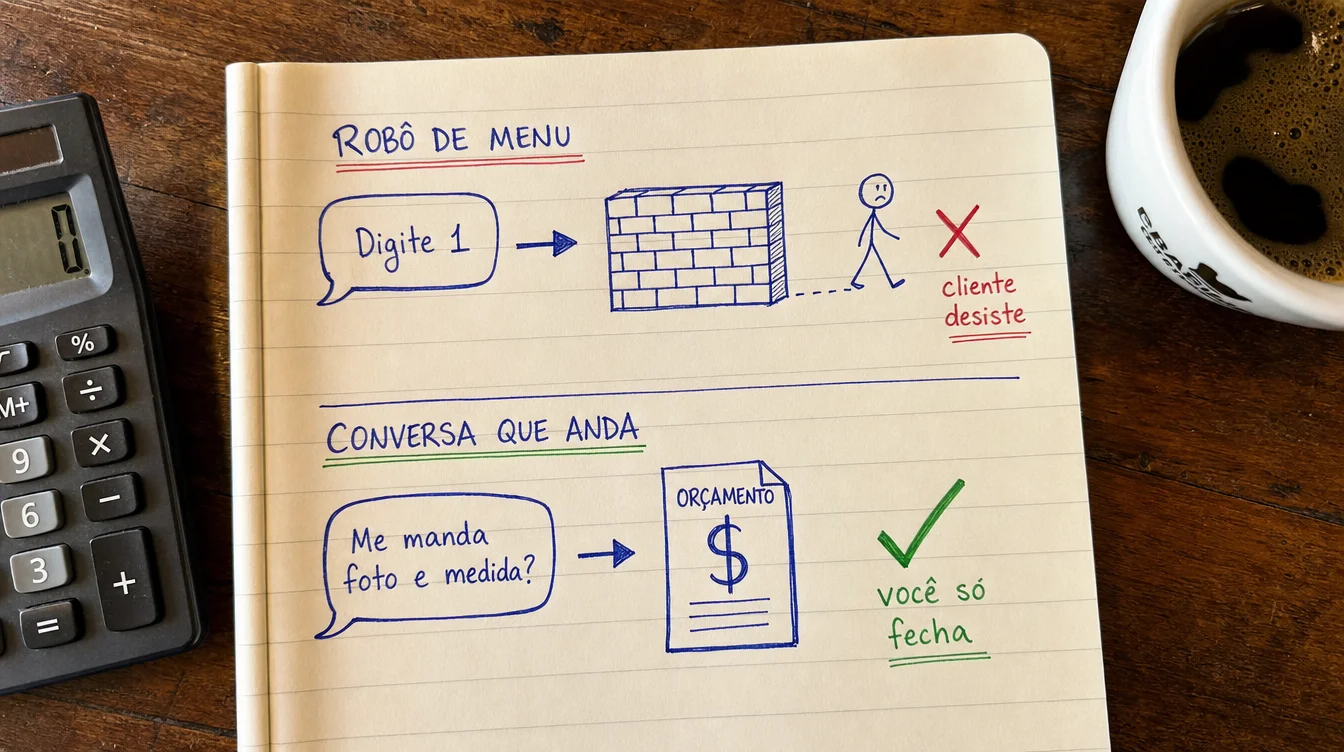 ROBÔ DE MENU
Digite 1
cliente
desiste
CONVERSA QUE ANDA
Me manda
foto e medida?
ORÇAMENTO
$
você só
fecha
0
%
M+
÷
9
×
6
−
3
+
=